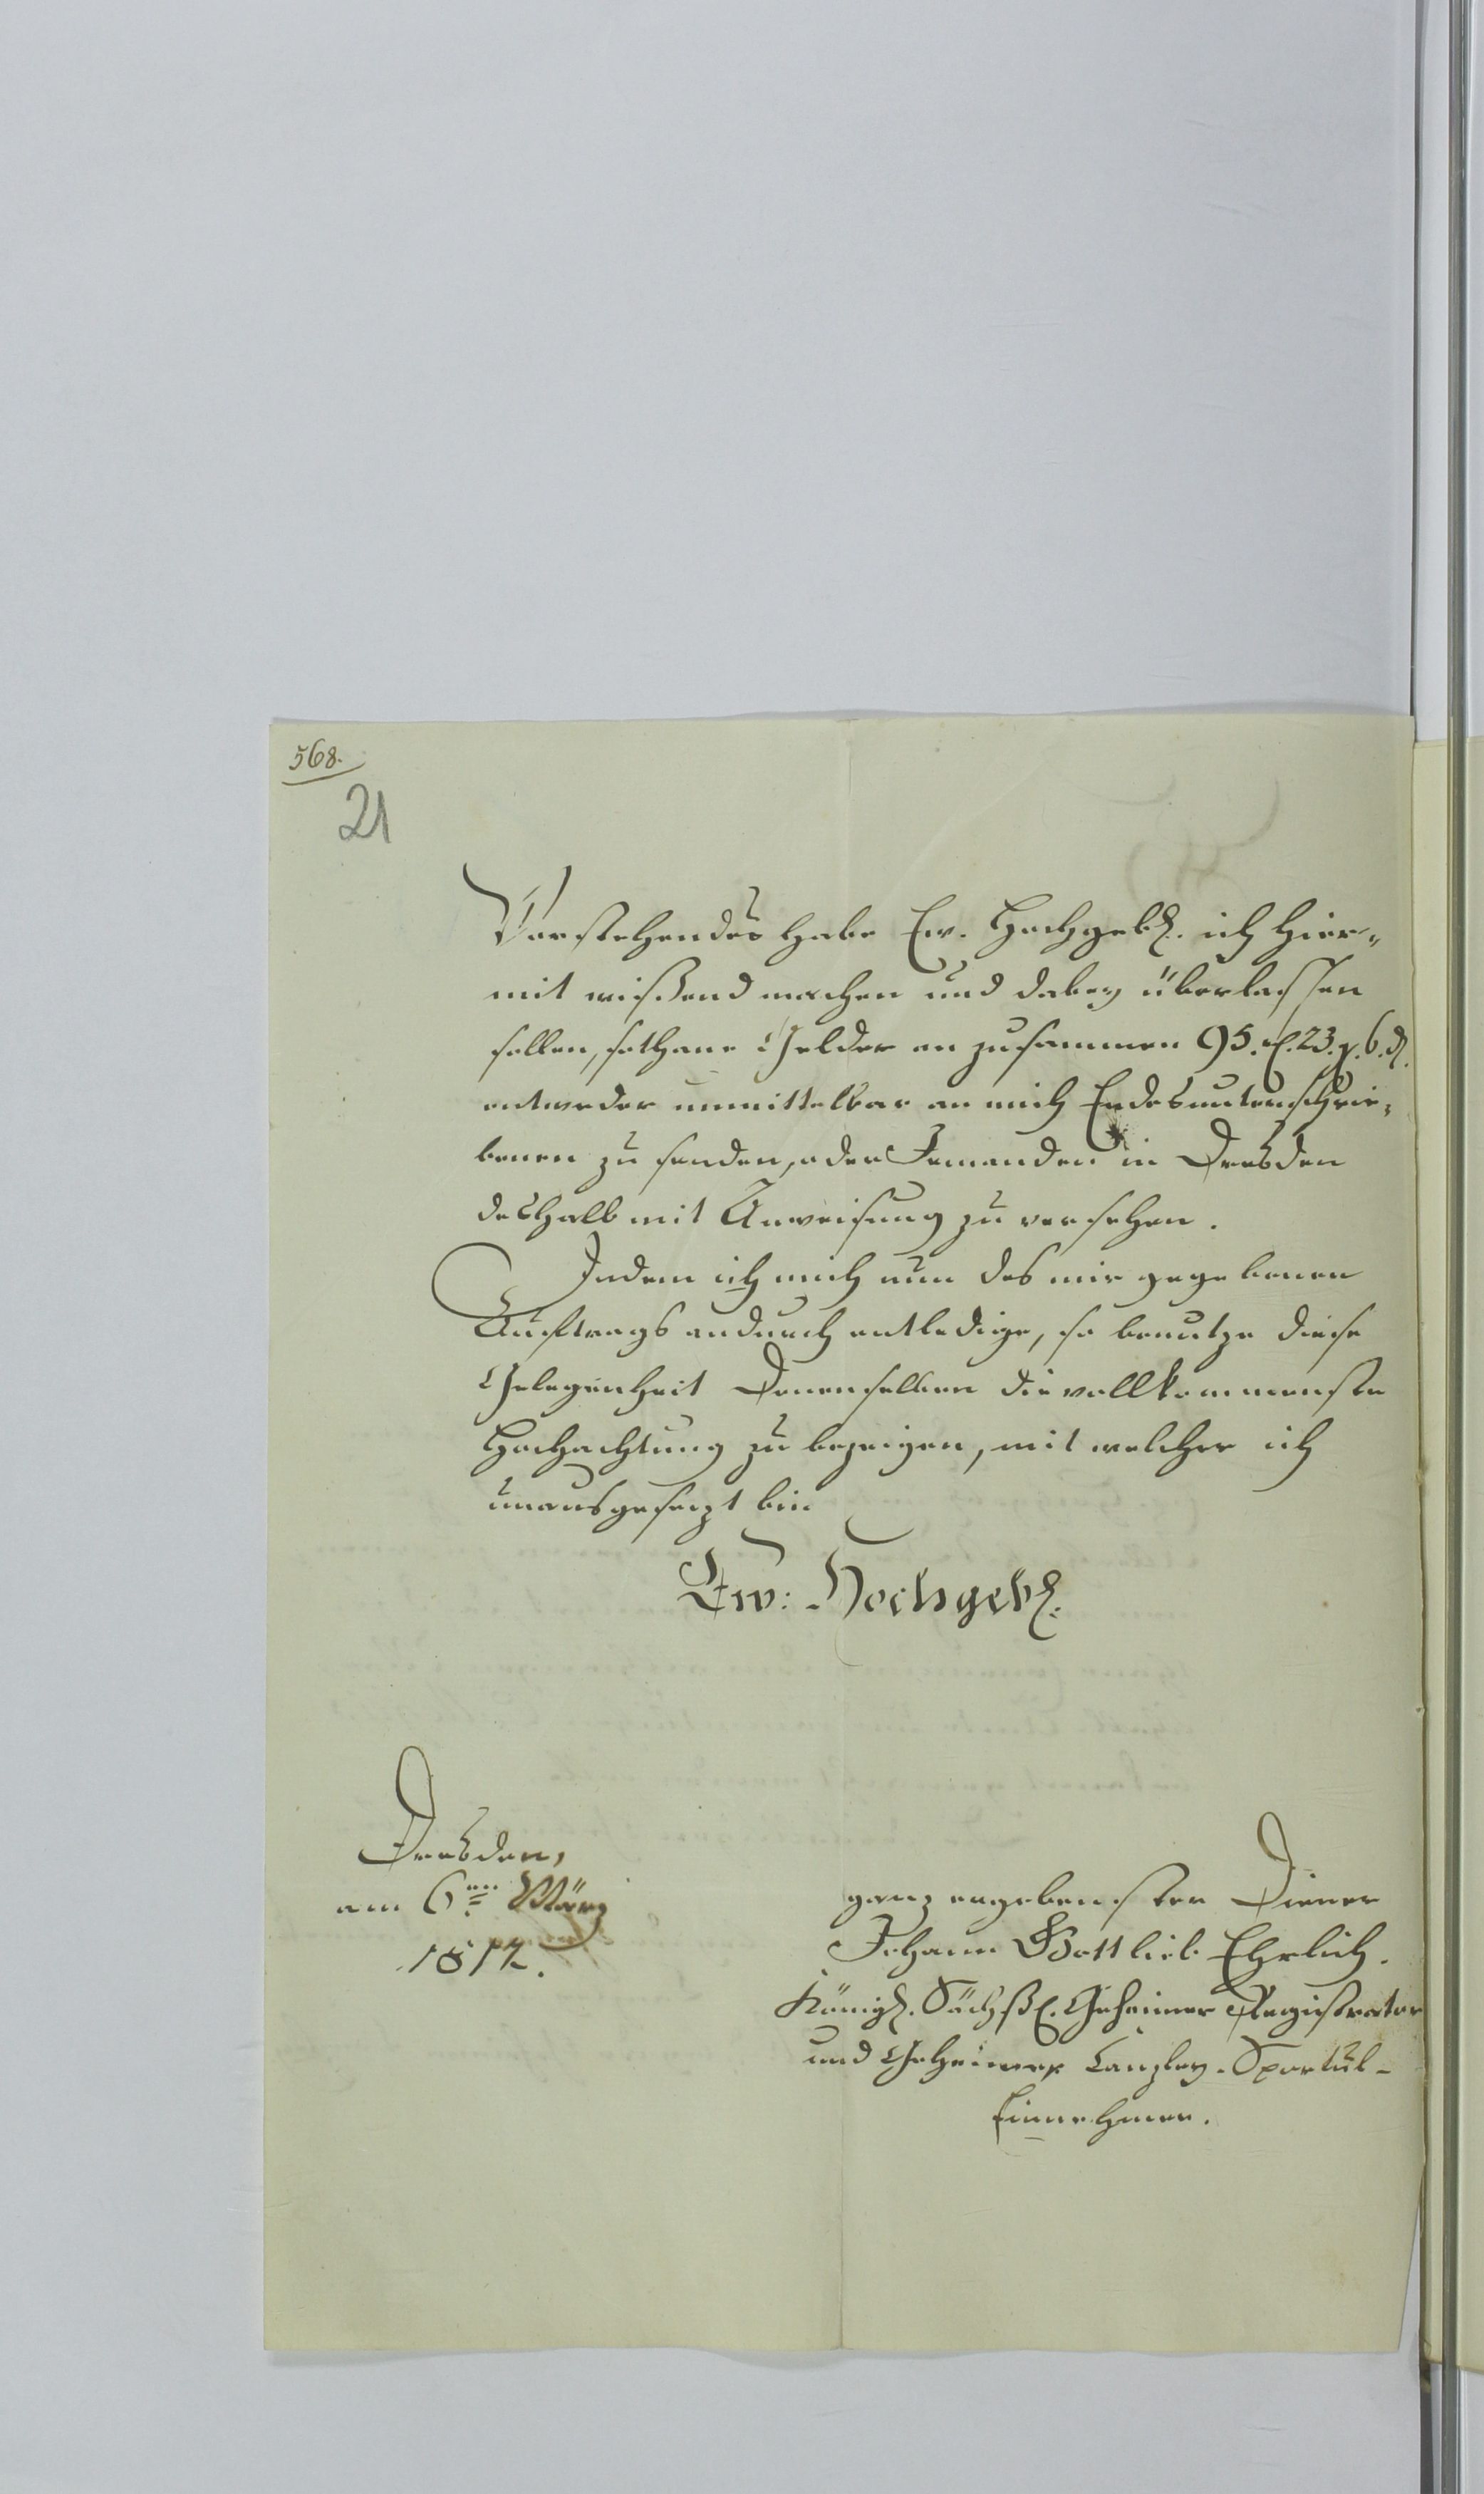 568.
21
Vorstehendes habe Ew. Hochgeb. ich hier„
mit wißend machen und dabey überlassen
sollen, sothane Gelder an zusammen 95. rl. 23. g. 6. d.
entweder unmittelbar an mich Endesunterschrie„
benen zu senden, oder Jemanden in Dresden
deshalb mit Anweisung zu versehen.
Indem ich mich nun des mir gegebenen
Auftrags andurch entledige, so benutze diese
Gelegenheit Denenselben die vollkommenste
Hochachtung zu bezeigen, mit welcher ich
unausgesezt bin
Ew: Hochgeb.
Dresden,
am 6ten März
1812.
ganz ergebenster Diener
Johann Gottlieb Ehrlich.
Königl. Sächßl. Geheimer Registrator
und Geheimer Canzley-Sportul-
Einnehmer.